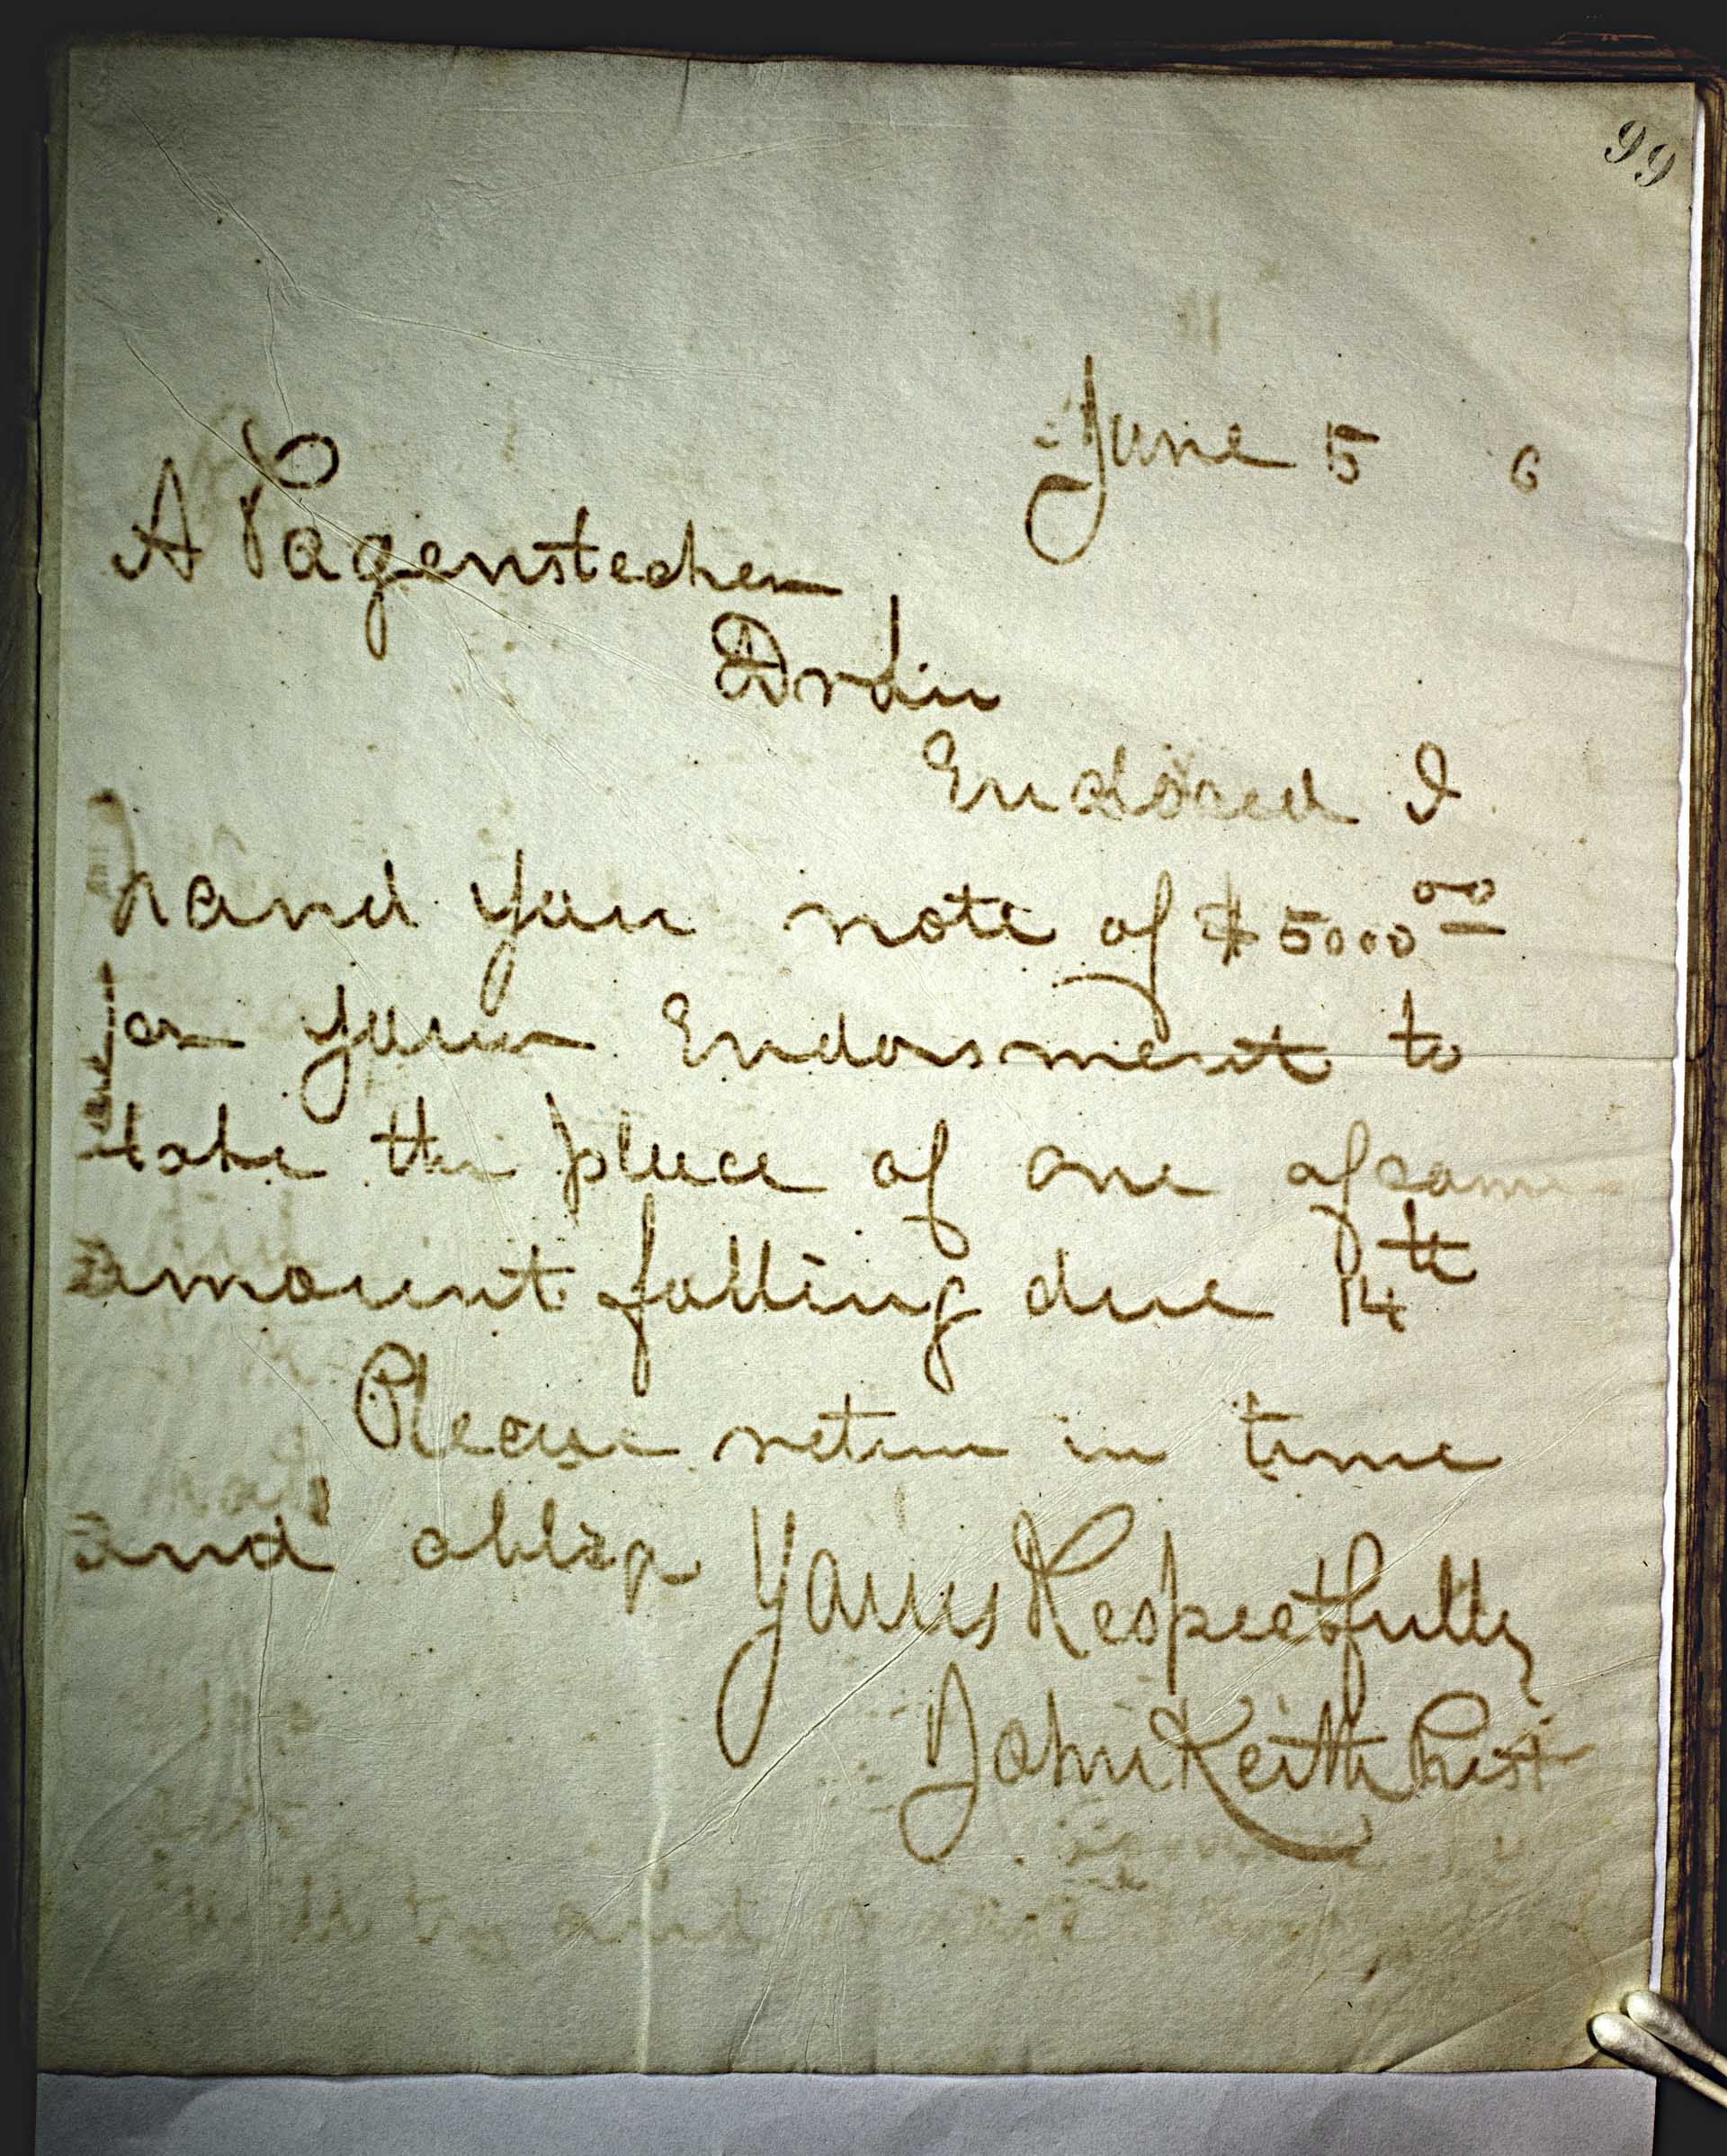 99
June 5 6
A Pagenstecher
Dr Sir
Enclosed I
hand you note of $5000 00
for your Endorsment to
take the place of one of same
amount falling due 14th
Please return in time
and oblige Yours Respectfully
John Keith Prest